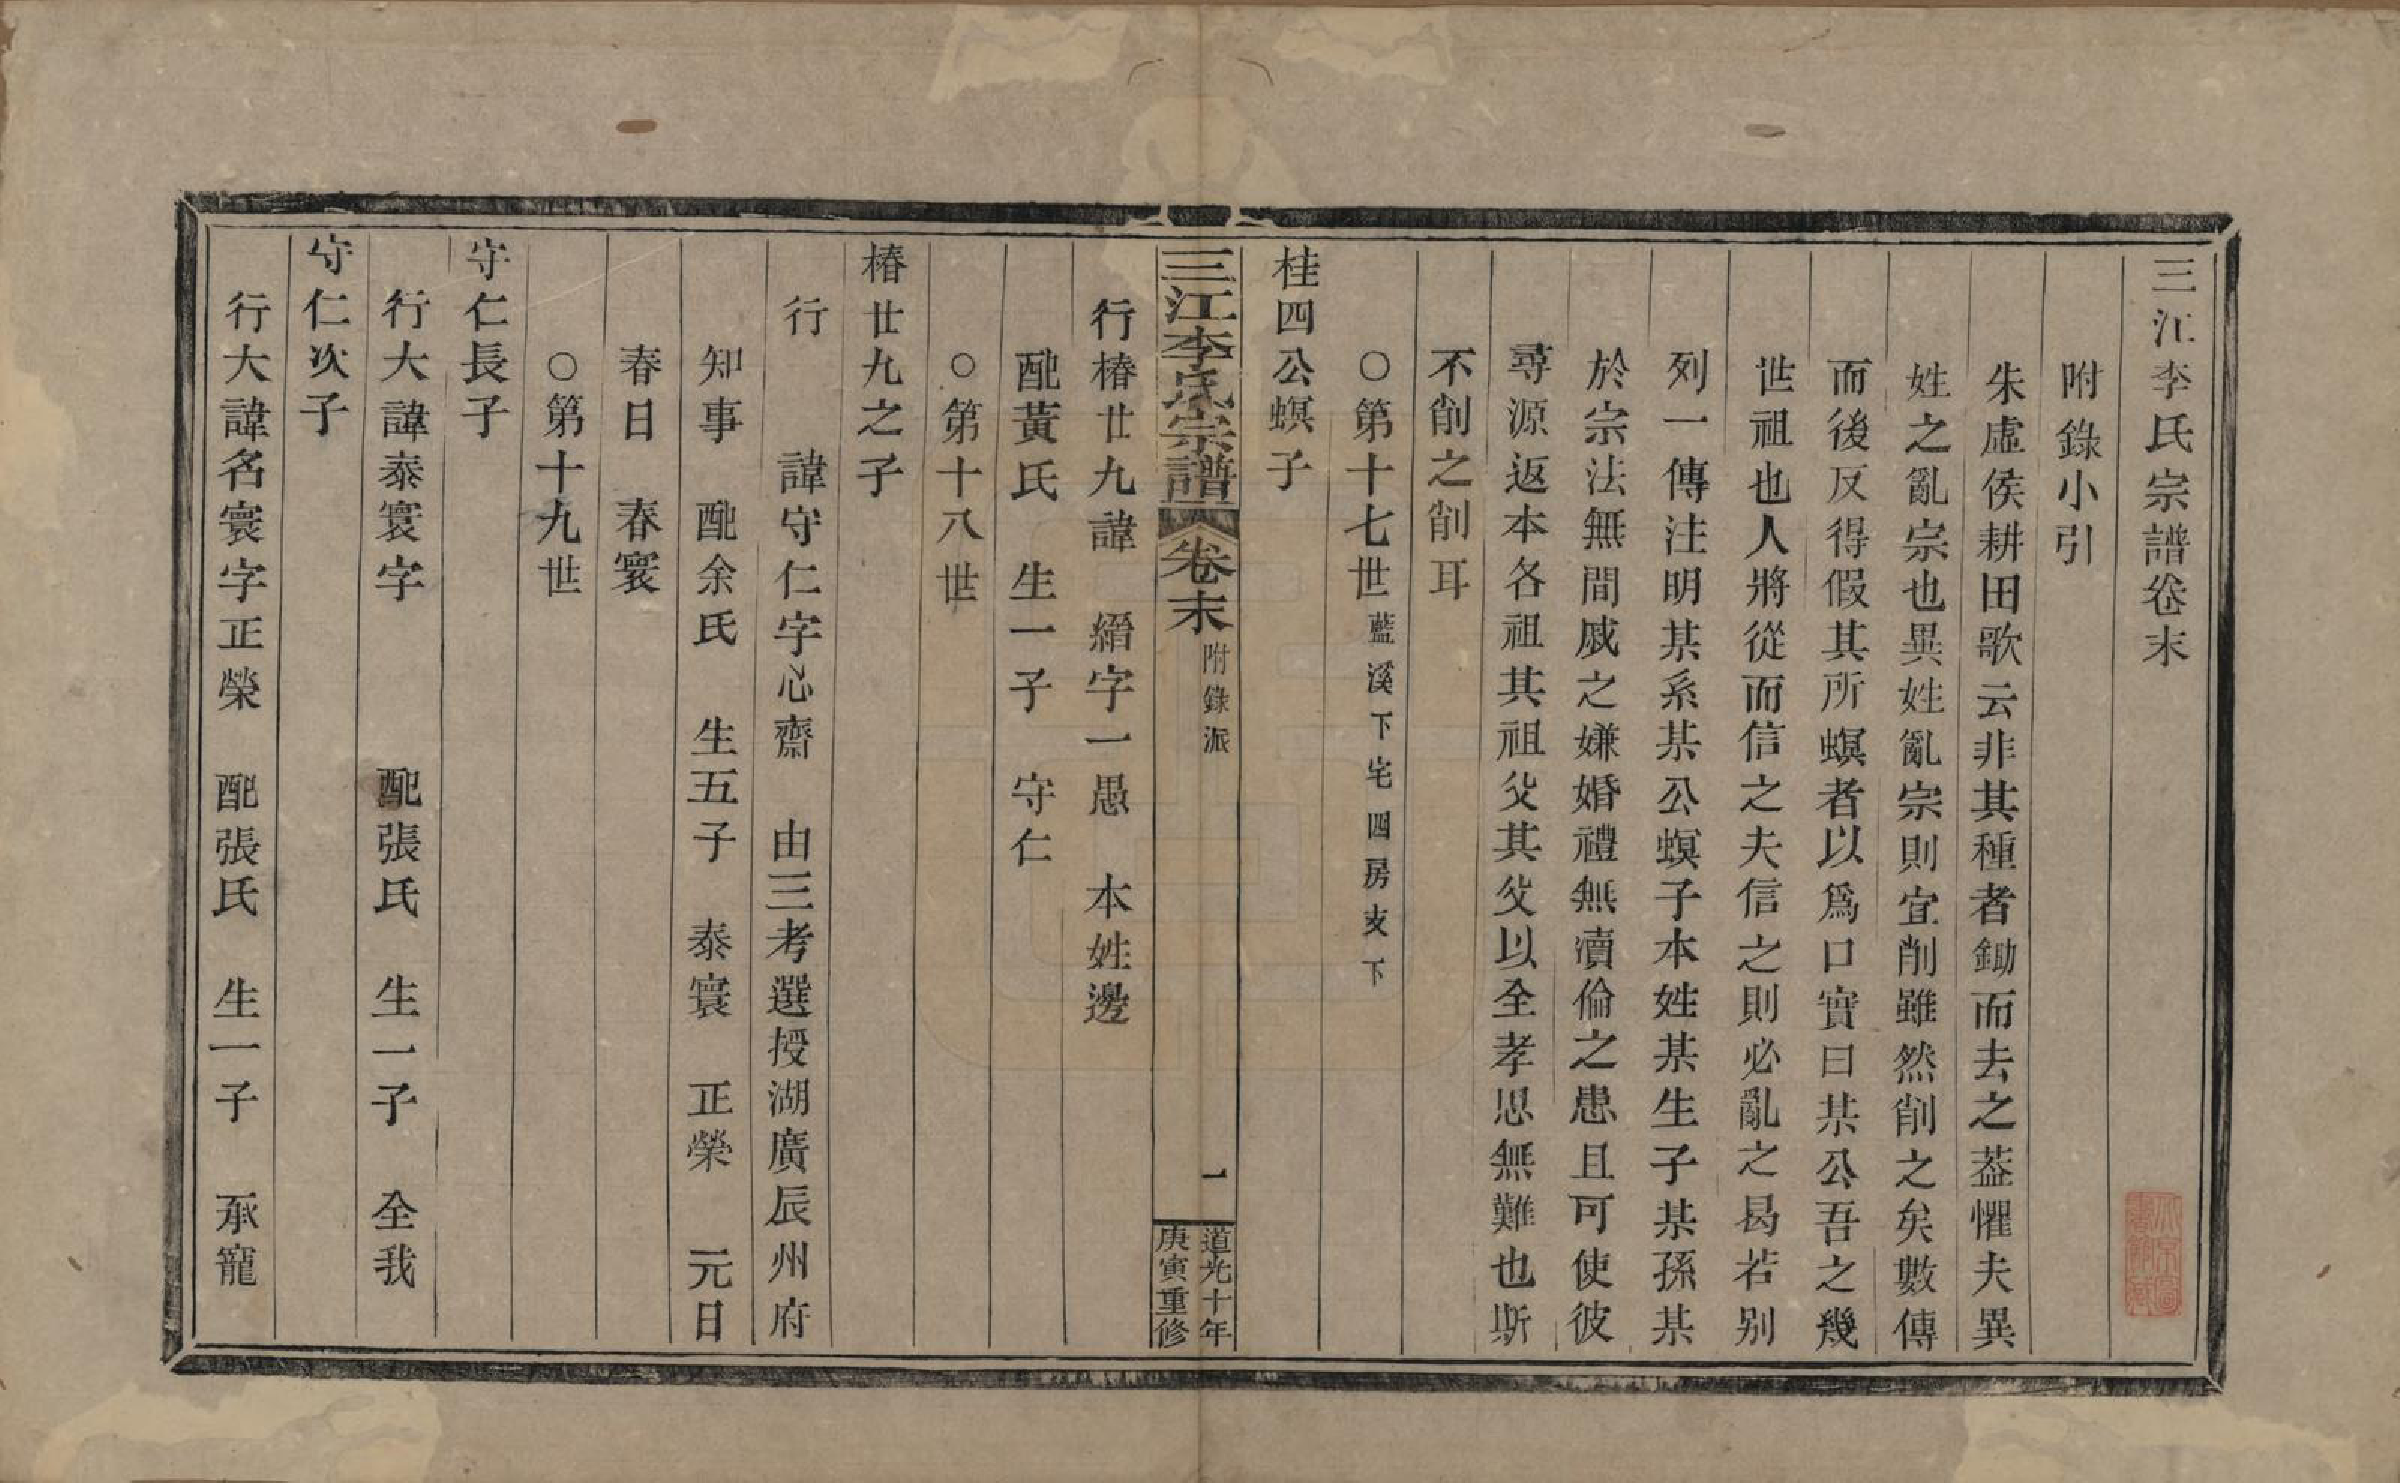 三江李氏宗譜卷末
附錄小引
朱虛侯耕田歌云非其種者鋤而去之葢懼夫異
姓之亂宗也異姓亂宗則宜削雖然削之矣數傳
而後反得假其所螟者以爲口實曰某公吾之幾
世祖也人將從而信之夫信之則必亂之曷若別
列一傳注明某系某公螟子本姓某生子某孫某
於宗法無間戚之嫌婚禮無瀆倫之患且可使彼
尋源返本各祖其祖父其父以全孝思無難也斯
不削之削耳
○第十七世藍溪下宅四房支下
桂四公螟子
三江李氏宗譜 卷末 附錄派 一 道光十年庚寅重修
行椿廿九諱 縉字一愚 本姓邊
配黃氏 生一子 守仁
○第十八世
椿廿九之子
行 諱守仁字心齋 由三考選授湖廣辰州府
知事 配余氏 生五子 泰寰 正榮 元日
春日 春寰
○第十九世
守仁長子
行大諱泰寰字 配張氏 生一子 全我
守仁次子
行大諱名寰字正榮 配張氏 生一子 承寵